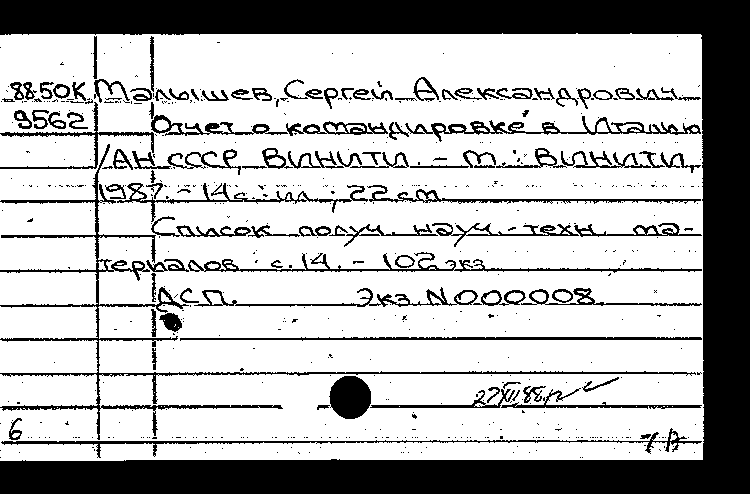 88-50К Малышев, Сергей Александрович
9562 Отчет о командировке в Италию
/АН СССР, ВИНИТИ. - М.: ВИНИТИ,
1987. - 14 с.: ил ; 22 см
Список получ. науч.-техн. ма-
териалов: с. 14. - 102 экз
ДСП. Экз. N000008.
27/XII.88г
6